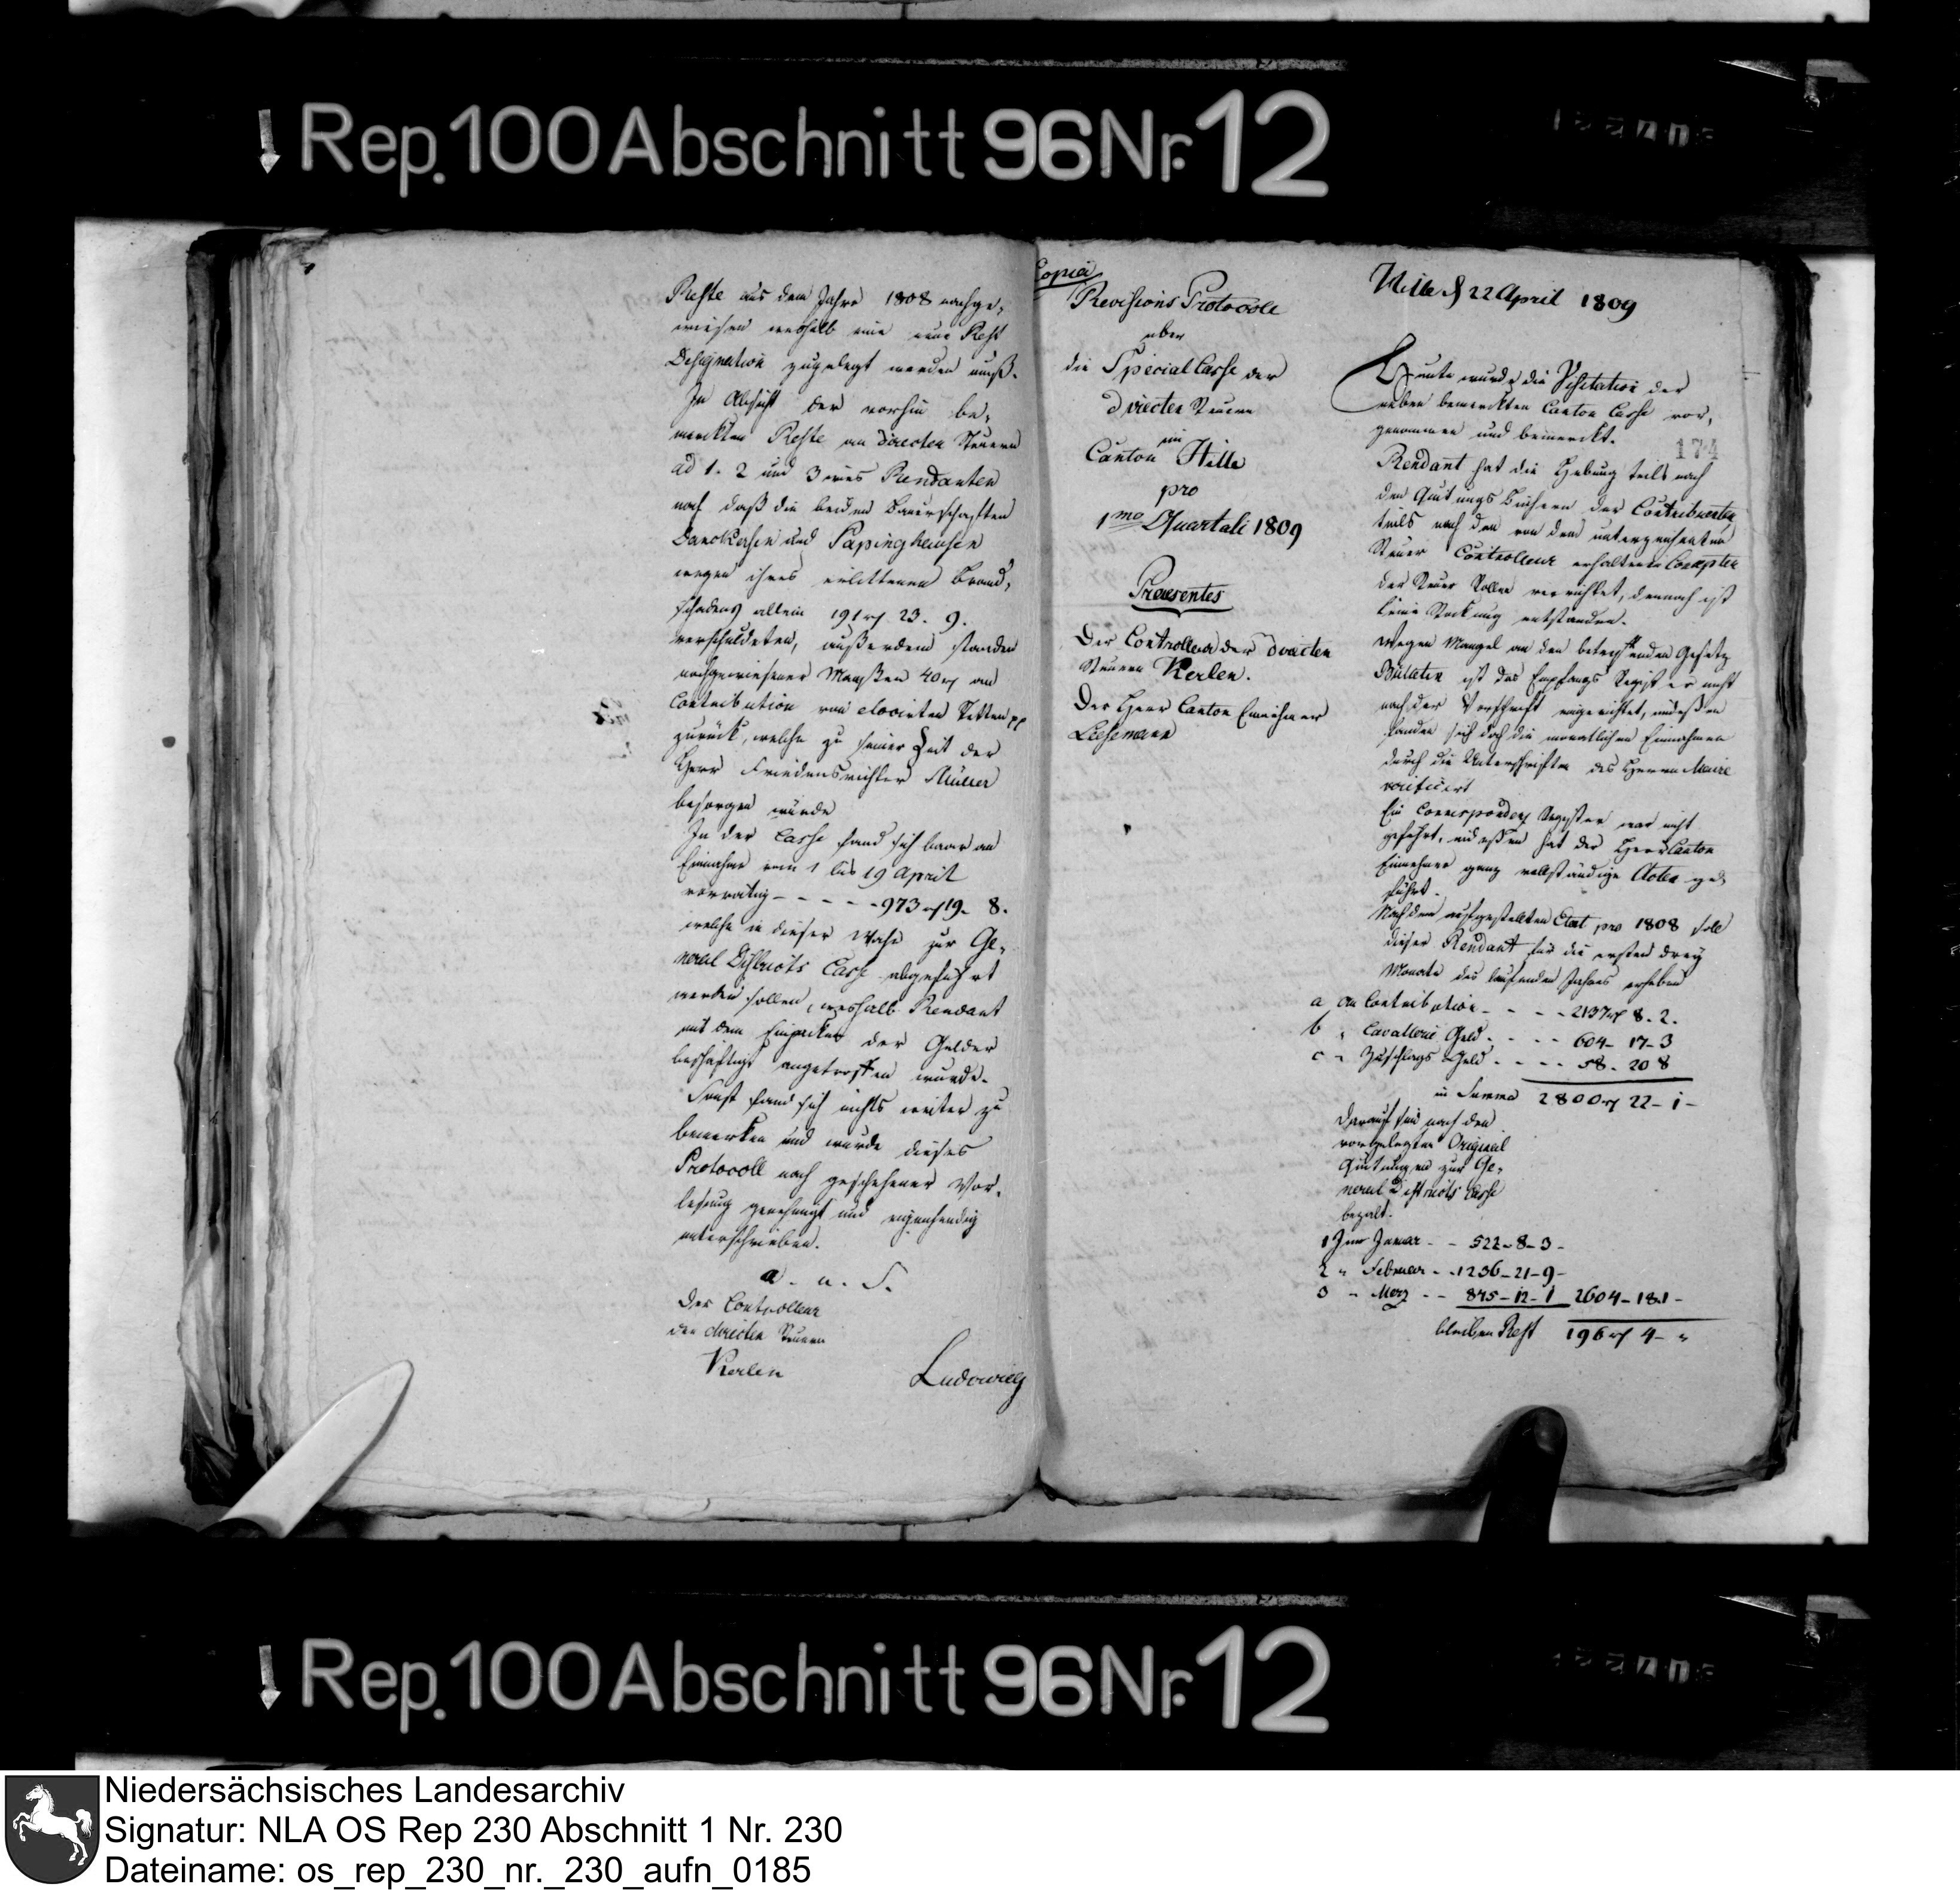 Rep. 100 Abschnitt 96 Nr. 12
Reste aus dem Jahre 1808 nachge-
wiesen weshalb eine neue Rest
Designation zugelegt werden muß.
In Absicht der vorhin be-
merckten Reste an directen Steuern
ad 1. 2 und 3 wies Rendanten
nach daß die beiden Bauerschafften
Danckersen und Papinghausen
wegen ihres erlittenen Brand-
schadens allein 191 rt 23. 9.
verschuldeten, außerdem standen
nachgewiesener Maaßen 40 rt an
Contribution von elocirten Stetten pp
zurück, welche zu seiner Zeit der
Herr Friedensrichter Müller
besorgen würde
In der Casse fand sich baar an
Einnahme vom 1 bis 19 April
vorrätig - - - - - 973 rt 19. 8.
welche in dieser Woche zur Ge-
neral Districts Casse abgeführt
werden sollen, weshalb Rendant
mit dem Einpacken der Gelder
beschäftigt angetroffen wurde.
Sonst fand sich nichts weiter zu
bemerken und wurde dieses
Protocoll nach geschehener Vor-
lesung genehmigt und eigenhändig
unterschrieben.
a. u. S.
Der Controlleur
der directen Steuern
Kerlen
Ludowieg
Copia
Revisions Protocoll
uber
die Special Casse der
directen Steuern
im
Canton Hille
pro
1mo Quartali 1809
Praesentes
Der Controlleur der directen
Steuern Kerlen.
Der Herr Canton Einnehmer
Liesemann
Hille d 22 April 1809
Heute wurde die Visitation der
neben bemerckten Canton Casse vor-
genommen und bemerckt.
174
Rendant hat die Hebung teils nach
den Quitungs Büchern der Contribuenten
teils nach den von dem unterzeichneten
Steuer Controlleur erhaltenen Concepten
der Steuer Rollen verrichtet, dennoch ist
keine Stockung entstanden.
Wegen Mangel an den betreffenden Gesetz
Bulletin ist das Empfangs Register nicht
nach der Vorschrift eingerichtet, indeßen
fanden sich doch die monatlichen Einnahmen
durch die Unterschriften des Herrn Maire
verificirt
Ein Correspondenz Register war nicht
geführt, indeßen hat der Herr Canton
Einnehmer ganz vollständige Acten ge-
führt.
Nach dem aufgestellten Etat pro 1808 soll
dieser Rendant für die ersten drey
Monate des laufenden Jahres erheben
a an Contribution - - - - 2137 rt 8. 2.
b " Cavallerie Geld - - - - 604 - 17 - 3
c " Zuschlags Geld - - - - 58. 20 8
in Summa 2800 rt 22 - 1 -
Darauf sind nach den
vorgelegten Original
Quitungen zur Ge-
neral Districts Casse
bezalt.
1 Im Januar - - 522 - 8 - 3 -
2 " Februar - - 1236 - 21 - 9 -
3 " Merz - - 845 - 12 - 1 2604 - 18. 1 -
bleiben Rest 196 rt 4 - "
Rep. 100 Abschnitt 96 Nr. 12
Niedersächsisches Landesarchiv
Signatur: NLA OS Rep 230 Abschnitt 1 Nr. 230
Dateiname: os_rep_230_nr._230_aufn_0185